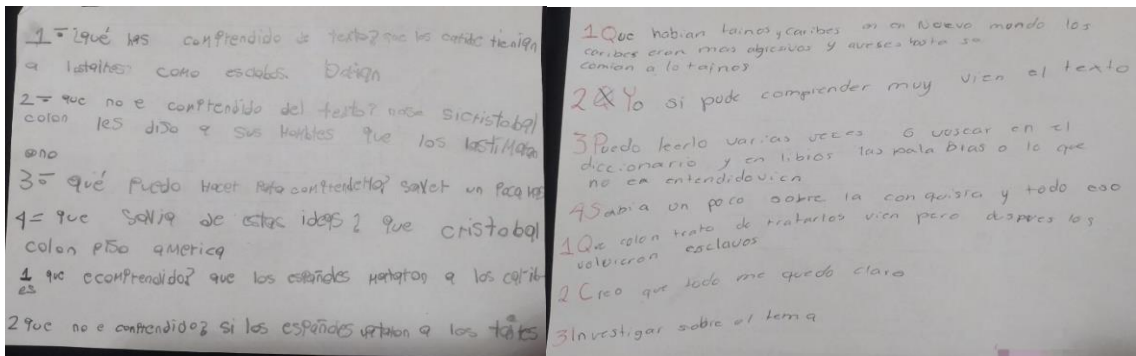 1= ¿qué has comprendido de texto? que los caribe tienian
a lostaines como esclabos.
2= que no e comprendido del texto? nose sicristobal
colon les diso a sus Hombles que los lastimara
ono
3= qué Puedo Hacer Para comprenderlo? saver un Poca mas
4= que savia de estas ideas? que cristobal
colon piso america
1 que ecomprendido? que los españoles mataron a los carib
es
2 que no e comprendido? si los españoles mataron a los
1 Que habian tainos, caribes en Nuevo mondo los
caribes eran mas agresivos y asta se
comian a lo tainos
2 Yo si pude comprender muy vien el texto
3 Puedo leerlo varias veces o vuscar en el
diccionario y en libros las palabras o lo que
no en entendido vien
4 Sabia un poco sobre la conquista y todo eso
1 Que colon trato de tratarlos vien pero despues los
volvieron esclavos
2 Creo que todo me quedo claro
3 Investigar sobre el tema